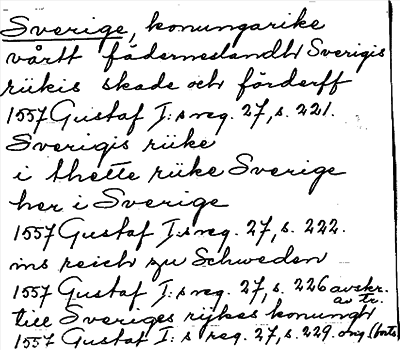 Sverige, konungarike
vårtt fäderneslandh Sverigis
riikis skade och förderff
1557 Gustaf I:s reg. 27, s. 221.
Sverigis riike
i thette riike Sverige
her i Sverige
1557 Gustaf I:s reg. 27, s. 222.
ins reich zu Schweden
1557 Gustaf I:s reg. 27, s. 226 avskr.
av tr.
till Sveriges rijkes konungh
1557 Gustaf I:s reg. 27, s. 229. orig. (borts